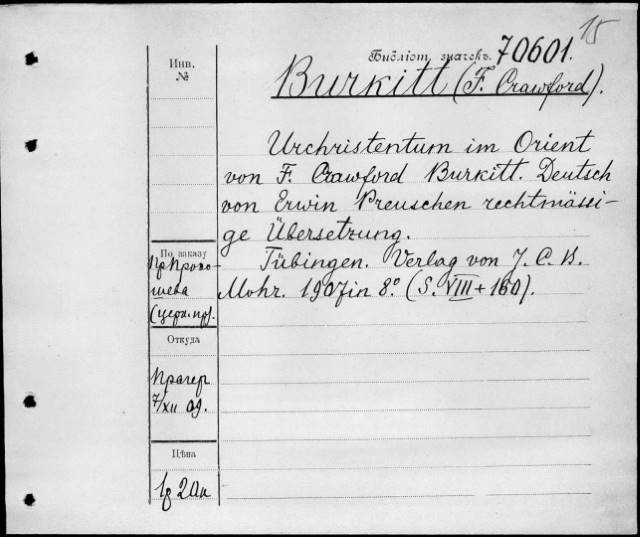 15
Библіот. значекъ. 70601.
Инв.
№
Burkitt (F. Crawford).
Urchristentum im Orient
von F. Crawford Burkitt. Deutsch
von Erwin Preuschen rechtmässi-
ge Übersetzung.
Tübingen. Verlag von J. C. B.
Mohr. 1907 in 8º (S. VIII + 160).
По заказу
пр
шева
(церк. пр).
Откуда
Прагер
7/XII 09.
Цѣна